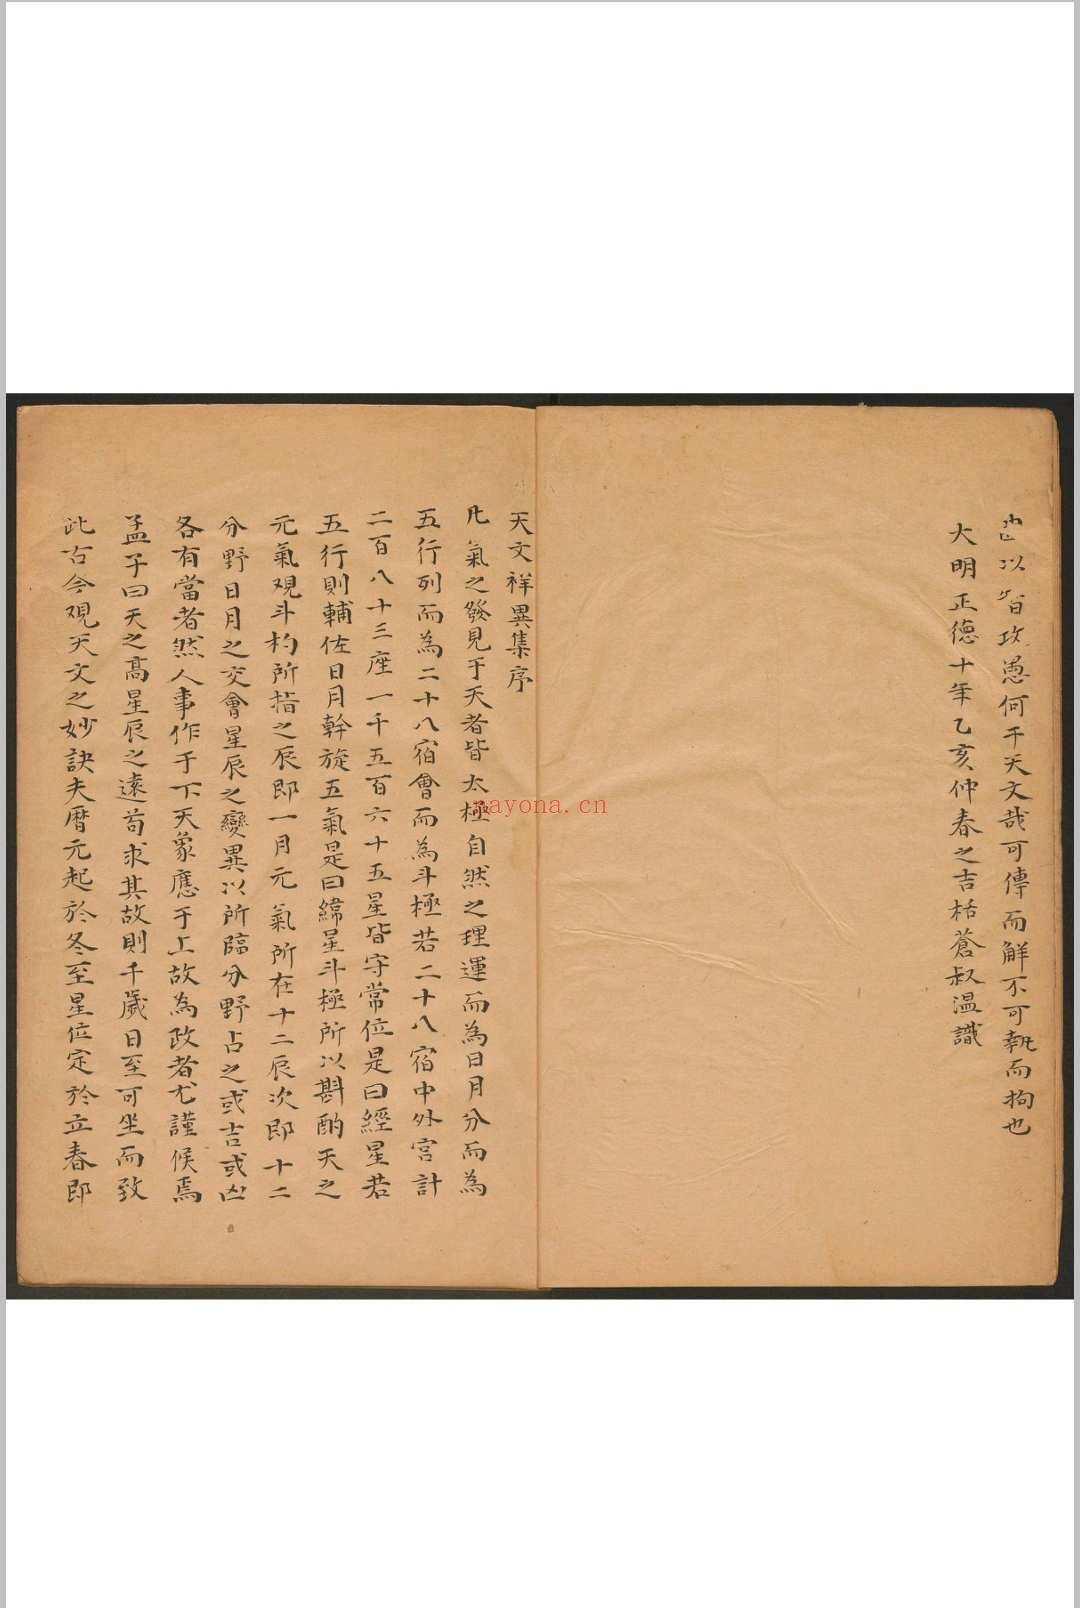 以 攻愚何干天文哉可傳而解不可執而拘也
大明正德十年乙亥仲春之吉栝蒼叔温識
天文祥異集序
凡氣之發見于天者皆太極自然之理運而為日月分而為
五行列而為二十八宿會而為斗極若二十八宿中外官計
二百八十三座一千五百六十五星皆守常位是曰經星若
五行則輔佐日月斡旋五氣是曰緯星斗極所以斟酌天之
元氣观斗杓所指之辰即一月元氣所在十二辰次即十二
分野日月之交會星辰之變異以所臨分野占之或吉或凶
各有當者然人事作于下天象應于上故為政者尤謹候焉
孟子曰天之髙星辰之遠苟求其故則千歲日至可坐而致
此古今观天文之妙訣夫曆元起於冬至星位定於立春即
nayona.cn